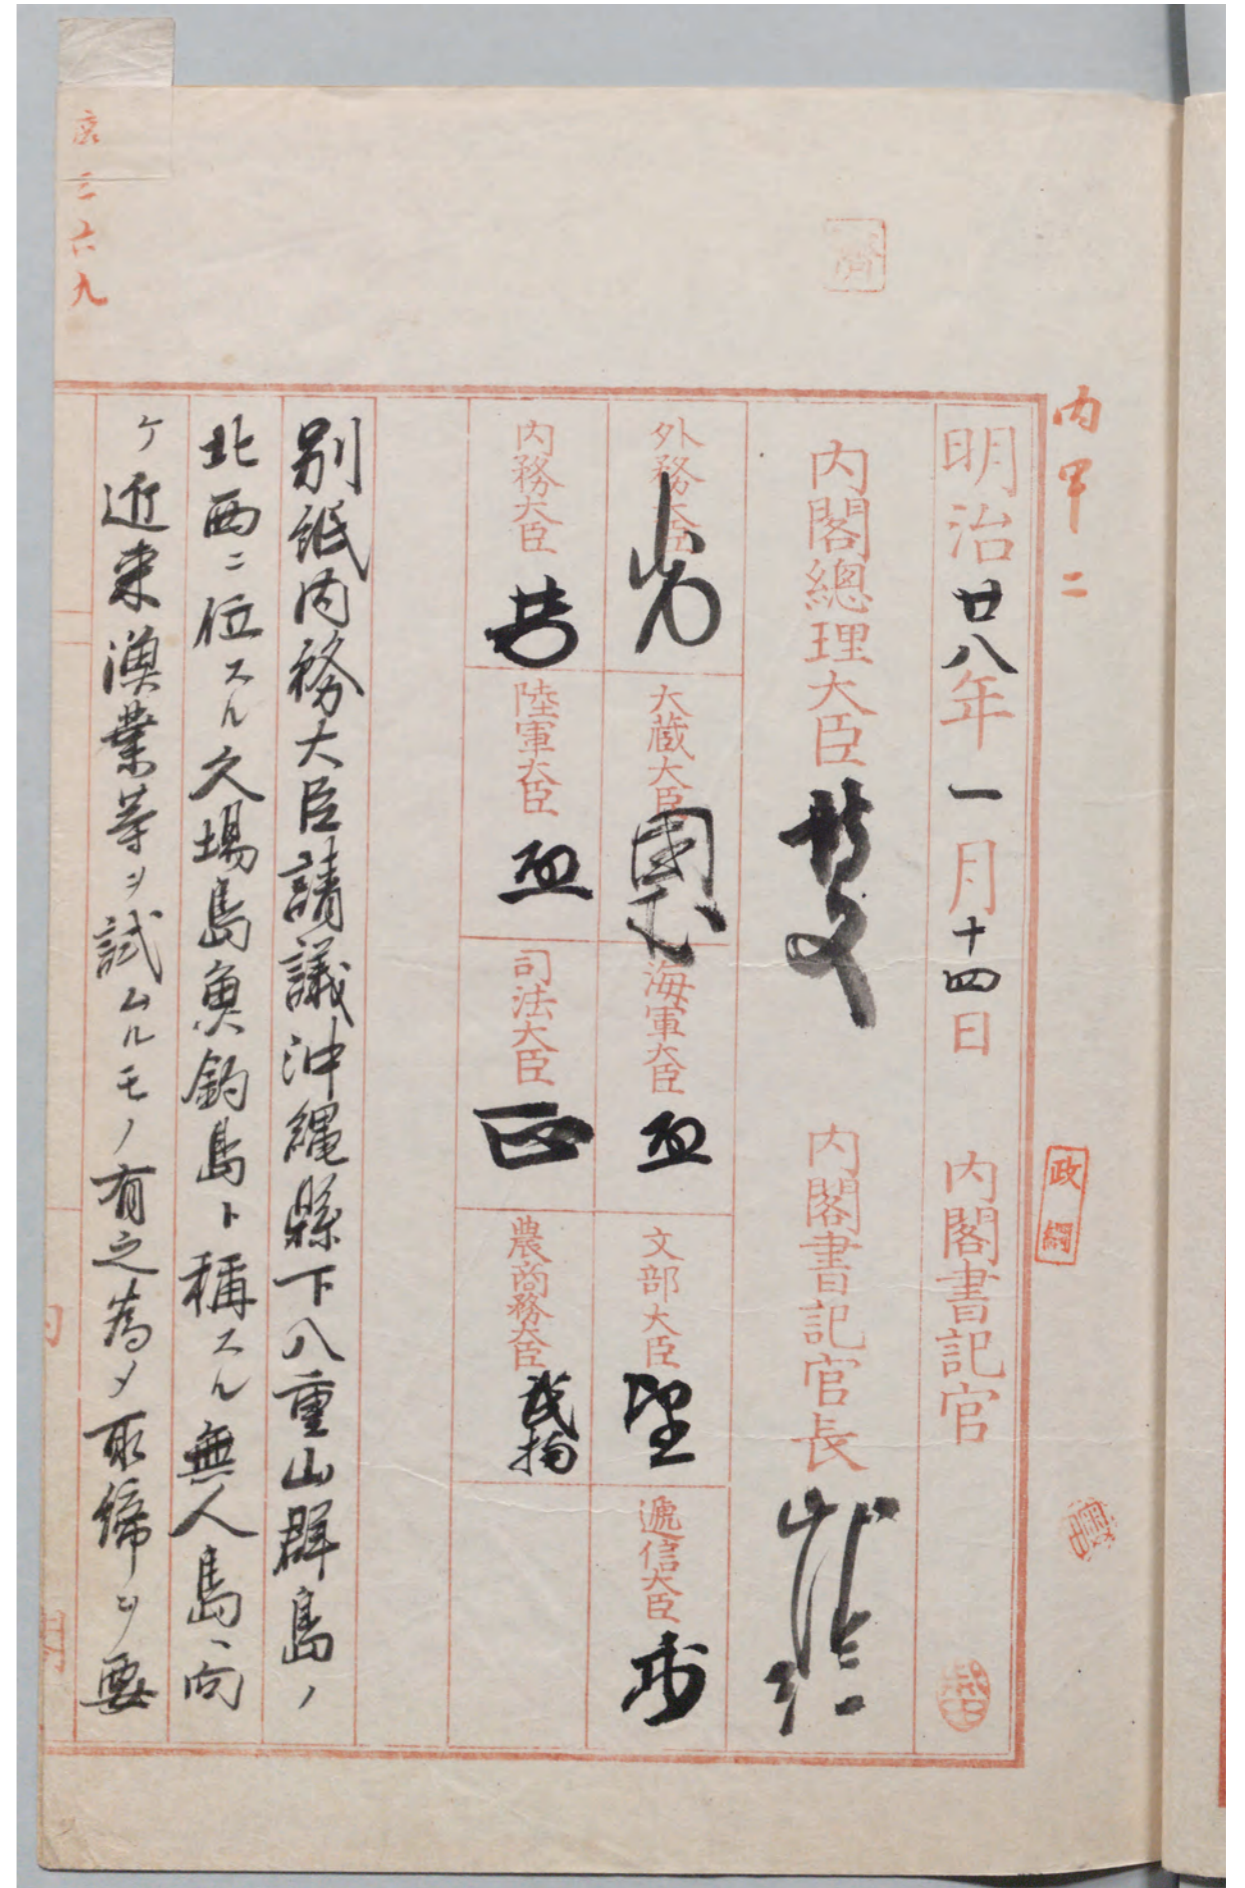 内甲二
政綱
明治廿八年一月十四日 内閣書記官
内閣總理大臣 内閣書記官長
外務大臣 大蔵大臣 海軍大臣 文部大臣 遞信大臣
内務大臣 陸軍大臣 司法大臣 農商務大臣
別紙内務大臣請議沖縄縣下八重山群島ノ
北西ニ位スル久場島魚釣島ト称スル無人島ヘ向
ケ近来漁業等ヲ試ムルモノ有之為メ取締ヲ要
三六九